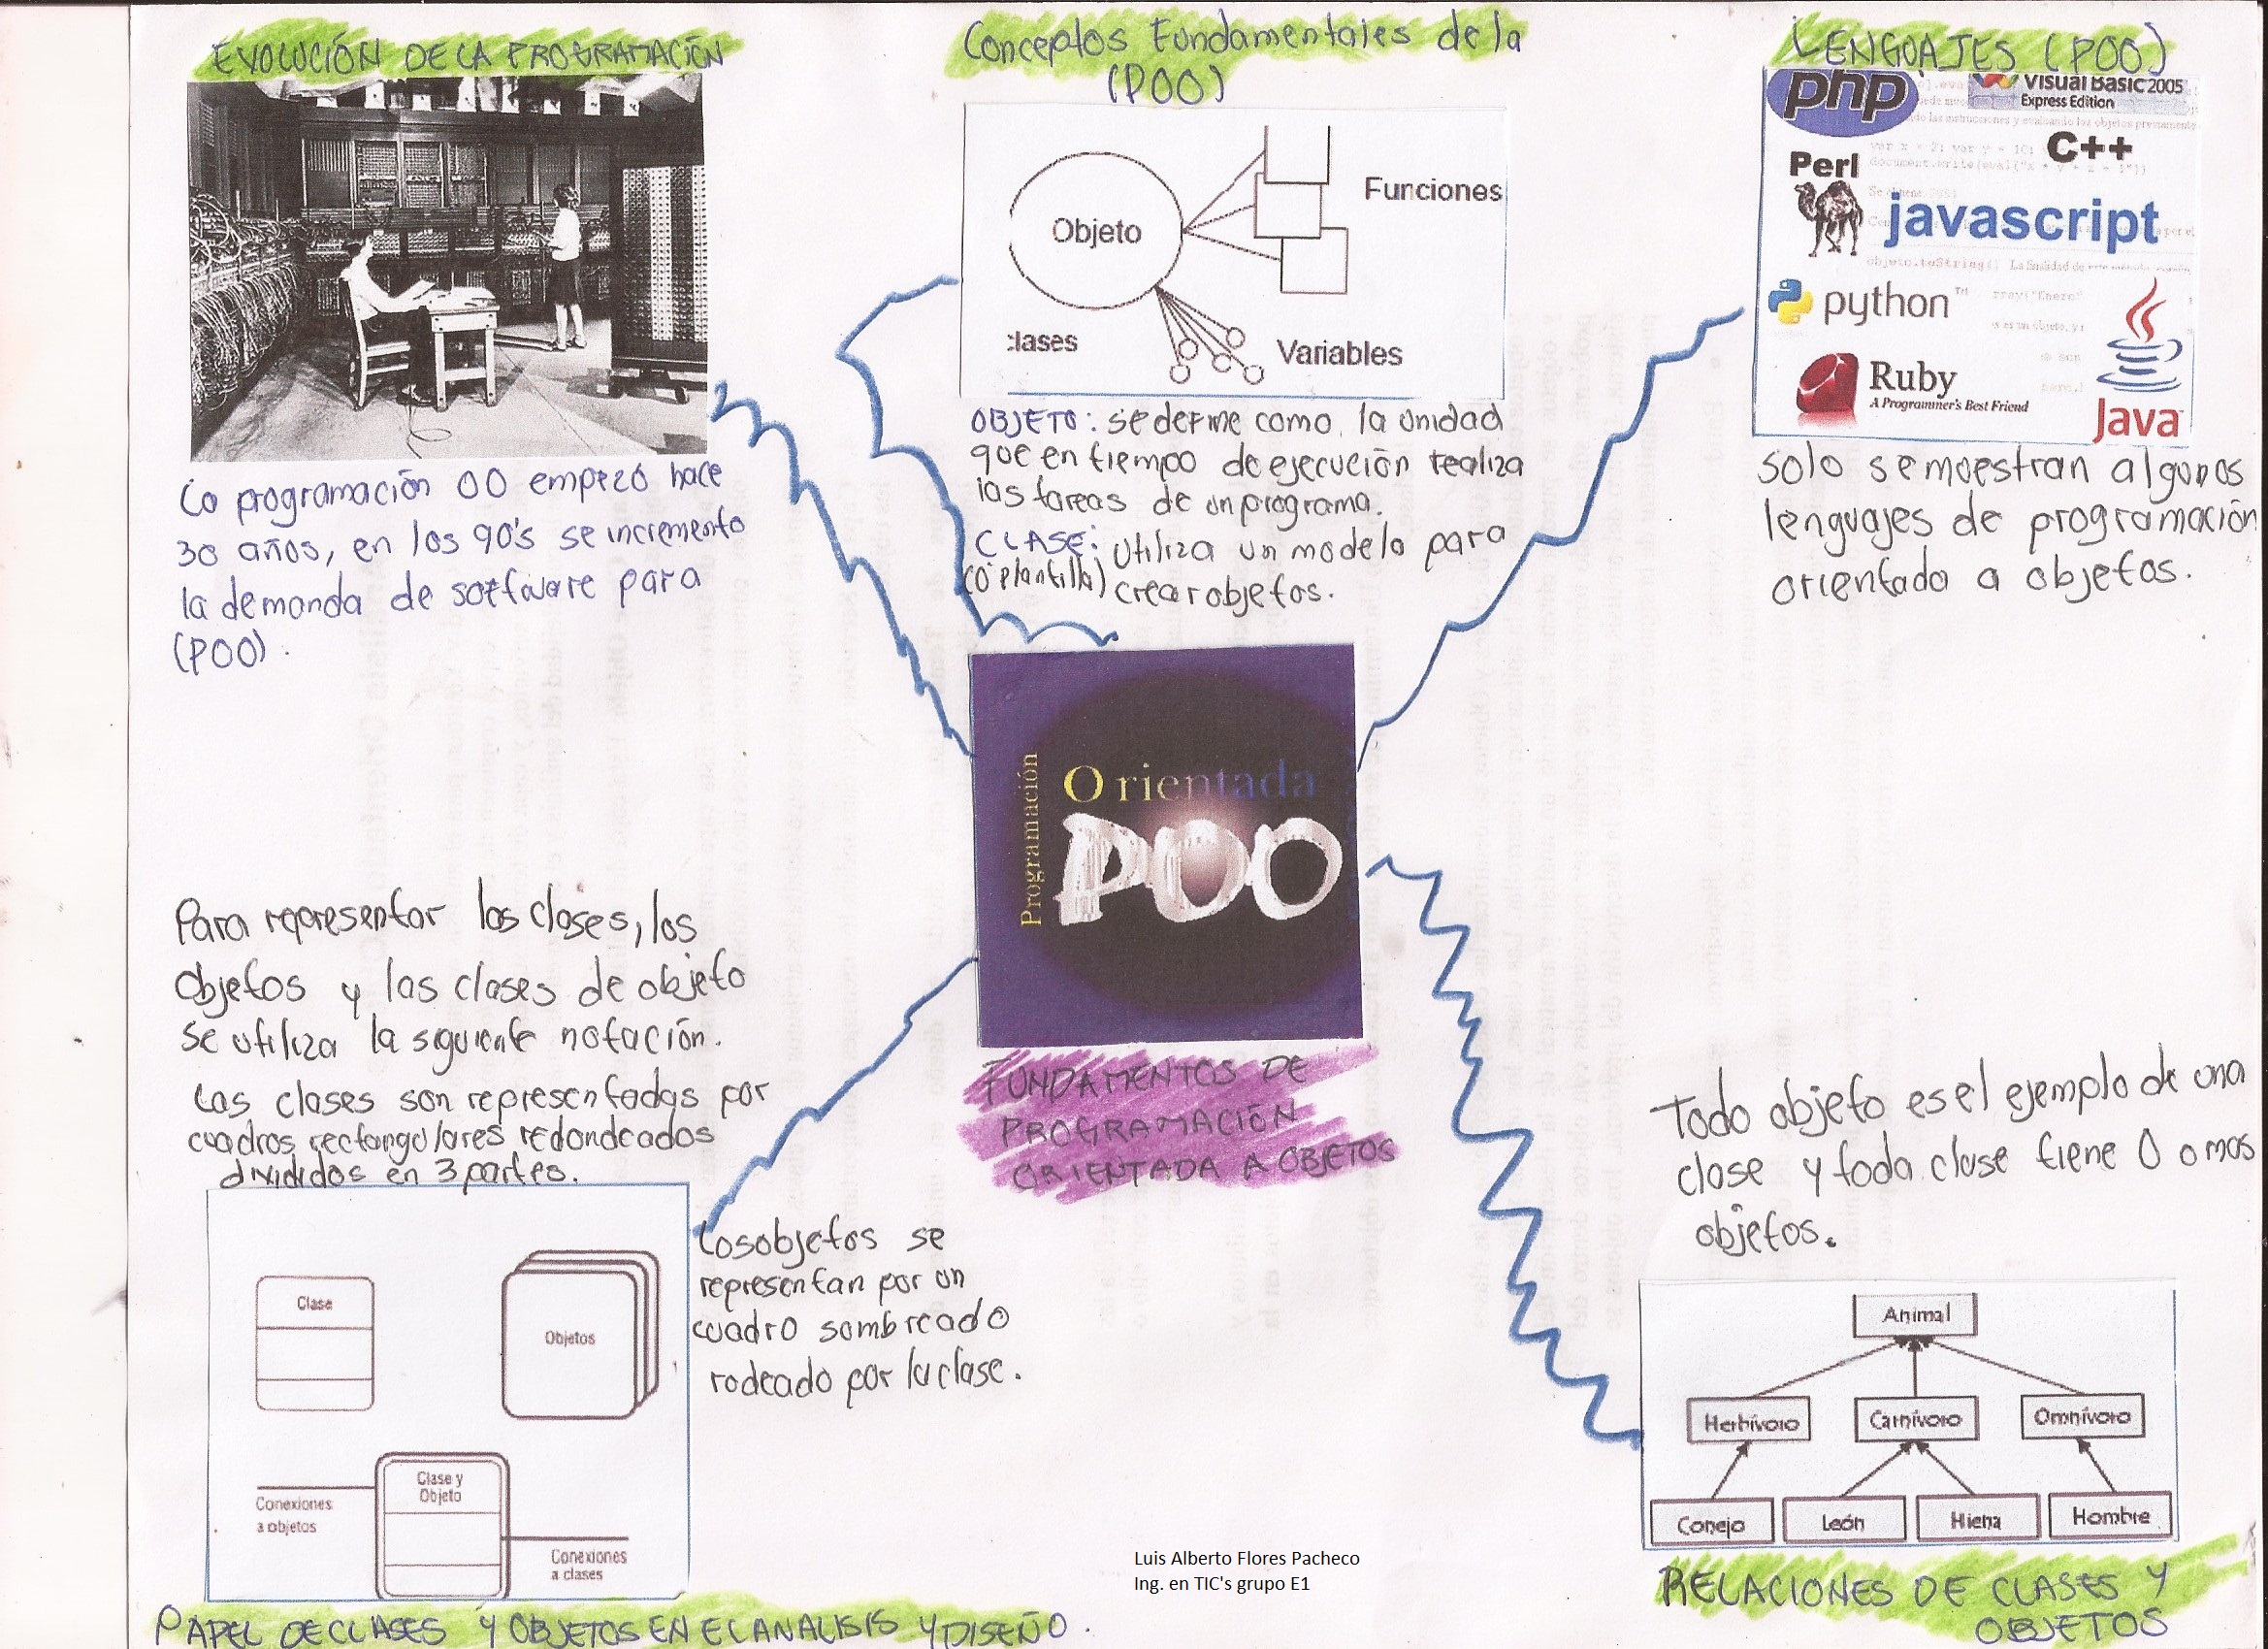 EVOLUCIÓN DE LA PROGRAMACIÓN
La programación OO empezó hace
30 años, en los 90's se incremento
la demanda de software para
(POO).
Conceptos Fundamentales de la
(POO)
Objeto
Funciones
clases
Variables
OBJETO: se define como la unidad
que en tiempo de ejecución realiza
las tareas de un programa.
CLASE: Utiliza un modelo para
(o plantilla) crear objetos.
LENGUAJES (POO)
php
Visual Basic 2005
Express Edition
C++
Perl
javascript
python™
Ruby
A Programmer's Best Friend
Java
solo se muestran algunos
lenguajes de programación
orientado a objetos.
Programación
Orientada
POO
FUNDAMENTOS DE
PROGRAMACIÓN
ORIENTADA A OBJETOS
Para representar las clases, los
objetos y las clases de objeto
se utiliza la siguiente notación.
Las clases son representadas por
cuadros rectangulares redondeados
divididos en 3 partes.
Clase
Objetos
Clase y
Objeto
Conexiones
a objetos
Conexiones
a clases
Los objetos se
representan por un
cuadro sombreado
rodeado por la clase.
PAPEL DE CLASES Y OBJETOS EN EL ANALISIS Y DISEÑO.
Todo objeto es el ejemplo de una
clase y toda clase tiene 0 o mas
objetos.
Animal
Herbívoro
Carnívoro
Omnívoro
Conejo
León
Hiena
Hombre
RELACIONES DE CLASES Y
OBJETOS
Luis Alberto Flores Pacheco
Ing. en TIC's grupo E1